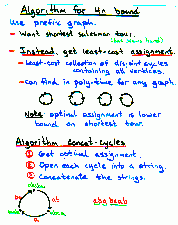 Algorithm for 4n bound
Use prefix graph.
- Want shortest salesman tour.
- Instead, get least-cost assignment.
- least-cost collection of disjoint cycles
containing all vertices.
- can find in poly-time for any graph.
Note optimal assignment is lower
bound on shortest tour.
Algorithm concat-cycles
① Get optimal assignment.
② Open each cycle into a string.
③ Concatenate the strings.